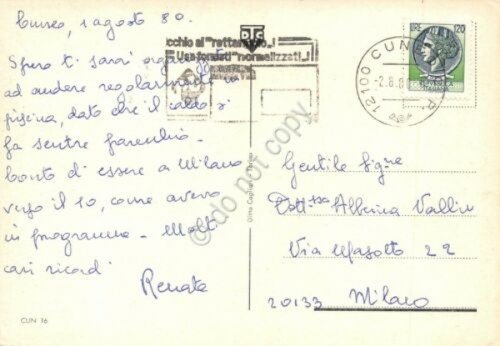 Cuneo, 1 agosto 80.
Spero ti sarai
ad andare regolarmente in
piscina, dato che il caldo si
fa sentire parecchio -
Conto di essere a Milano
verso il 10, come avevo
in programma - Molti
cari ricordi
Renata
CUN 36
occhio al "rettangolo"!
Usa formati "normalizzati"!
12100 CUNEO
-2.8.8
LIRE 120
do not copy
Gentile Sig.na
Dott.ssa Albina Vallin
Via Masotto 22
20133 Milano